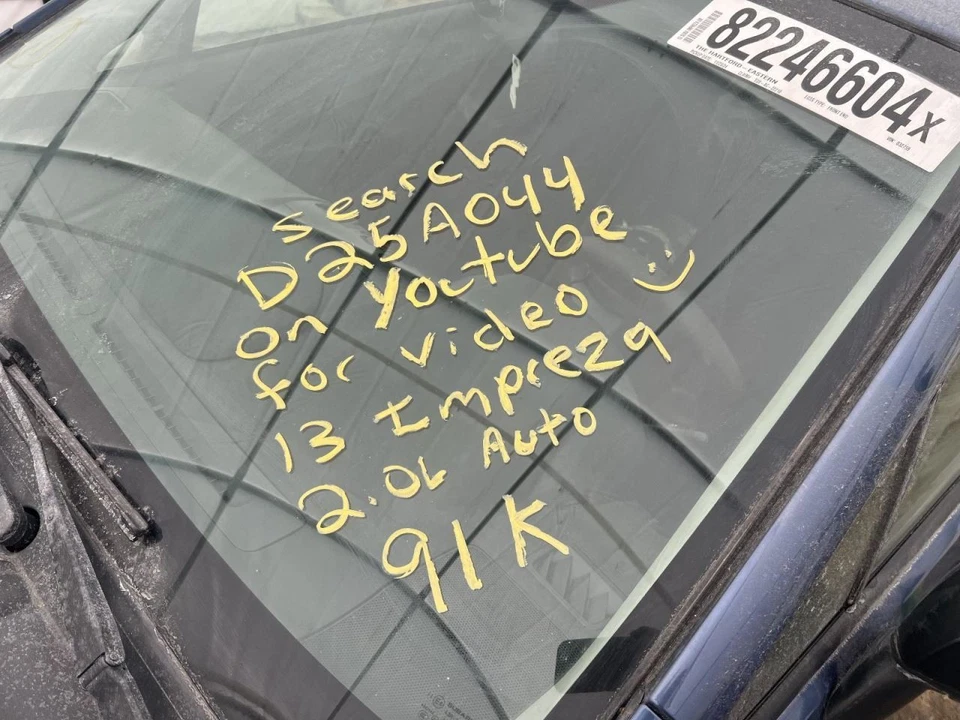 82246604X
THE HARTFORD - EASTERN
search
D25A044
on Youtube
for video :)
13 Impreza
2.0L Auto
91K